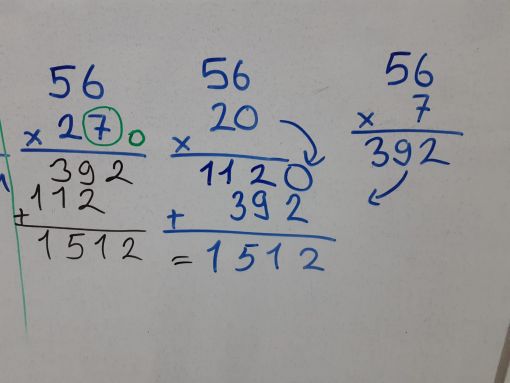 56
× 27 0
392
112
+
1512
56
20
×
1120
+ 392
= 1512
56
× 7
392